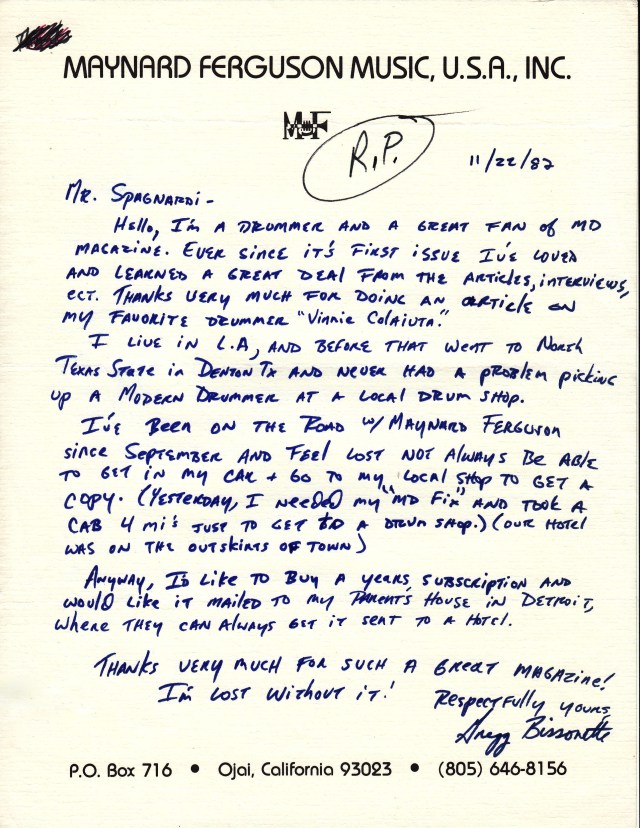 MAYNARD FERGUSON MUSIC, U.S.A., INC.
MF
R.P.
11/22/82
MR. SPAGNARDI -
HELLO, I'M A DRUMMER AND A GREAT FAN OF MD
MAGAZINE. EVER SINCE IT'S FIRST ISSUE I'VE LOVED
AND LEARNED A GREAT DEAL FROM THE ARTICLES, INTERVIEWS,
ECT. THANKS VERY MUCH FOR DOING AN ARTICLE ON
MY FAVORITE DRUMMER "VINNIE COLAIUTA."
I LIVE IN L.A, AND BEFORE THAT WENT TO NORTH
TEXAS STATE IN DENTON TX AND NEVER HAD A PROBLEM PICKING
UP A MODERN DRUMMER AT A LOCAL DRUM SHOP.
I'VE BEEN ON THE ROAD W/ MAYNARD FERGUSON
SINCE SEPTEMBER AND FEEL LOST NOT ALWAYS BE ABLE
TO GET IN MY CAR + GO TO MY LOCAL SHOP TO GET A
COPY. (YESTERDAY, I NEEDED MY "MD FIX" AND TOOK A
CAB 4 MI'S JUST TO GET TO A DRUM SHOP.) (OUR HOTEL
WAS ON THE OUTSKIRTS OF TOWN)
ANYWAY, I'D LIKE TO BUY A YEARS SUBSCRIPTION AND
WOULD LIKE IT MAILED TO MY PARENT'S HOUSE IN DETROIT,
WHERE THEY CAN ALWAYS GET IT SENT TO A HOTEL.
THANKS VERY MUCH FOR SUCH A GREAT MAGAZINE!
I'M LOST WITHOUT IT!
RESPECTFULLY YOURS,
Gregg Bissonette
P.O. Box 716 • Ojai, California 93023 • (805) 646-8156